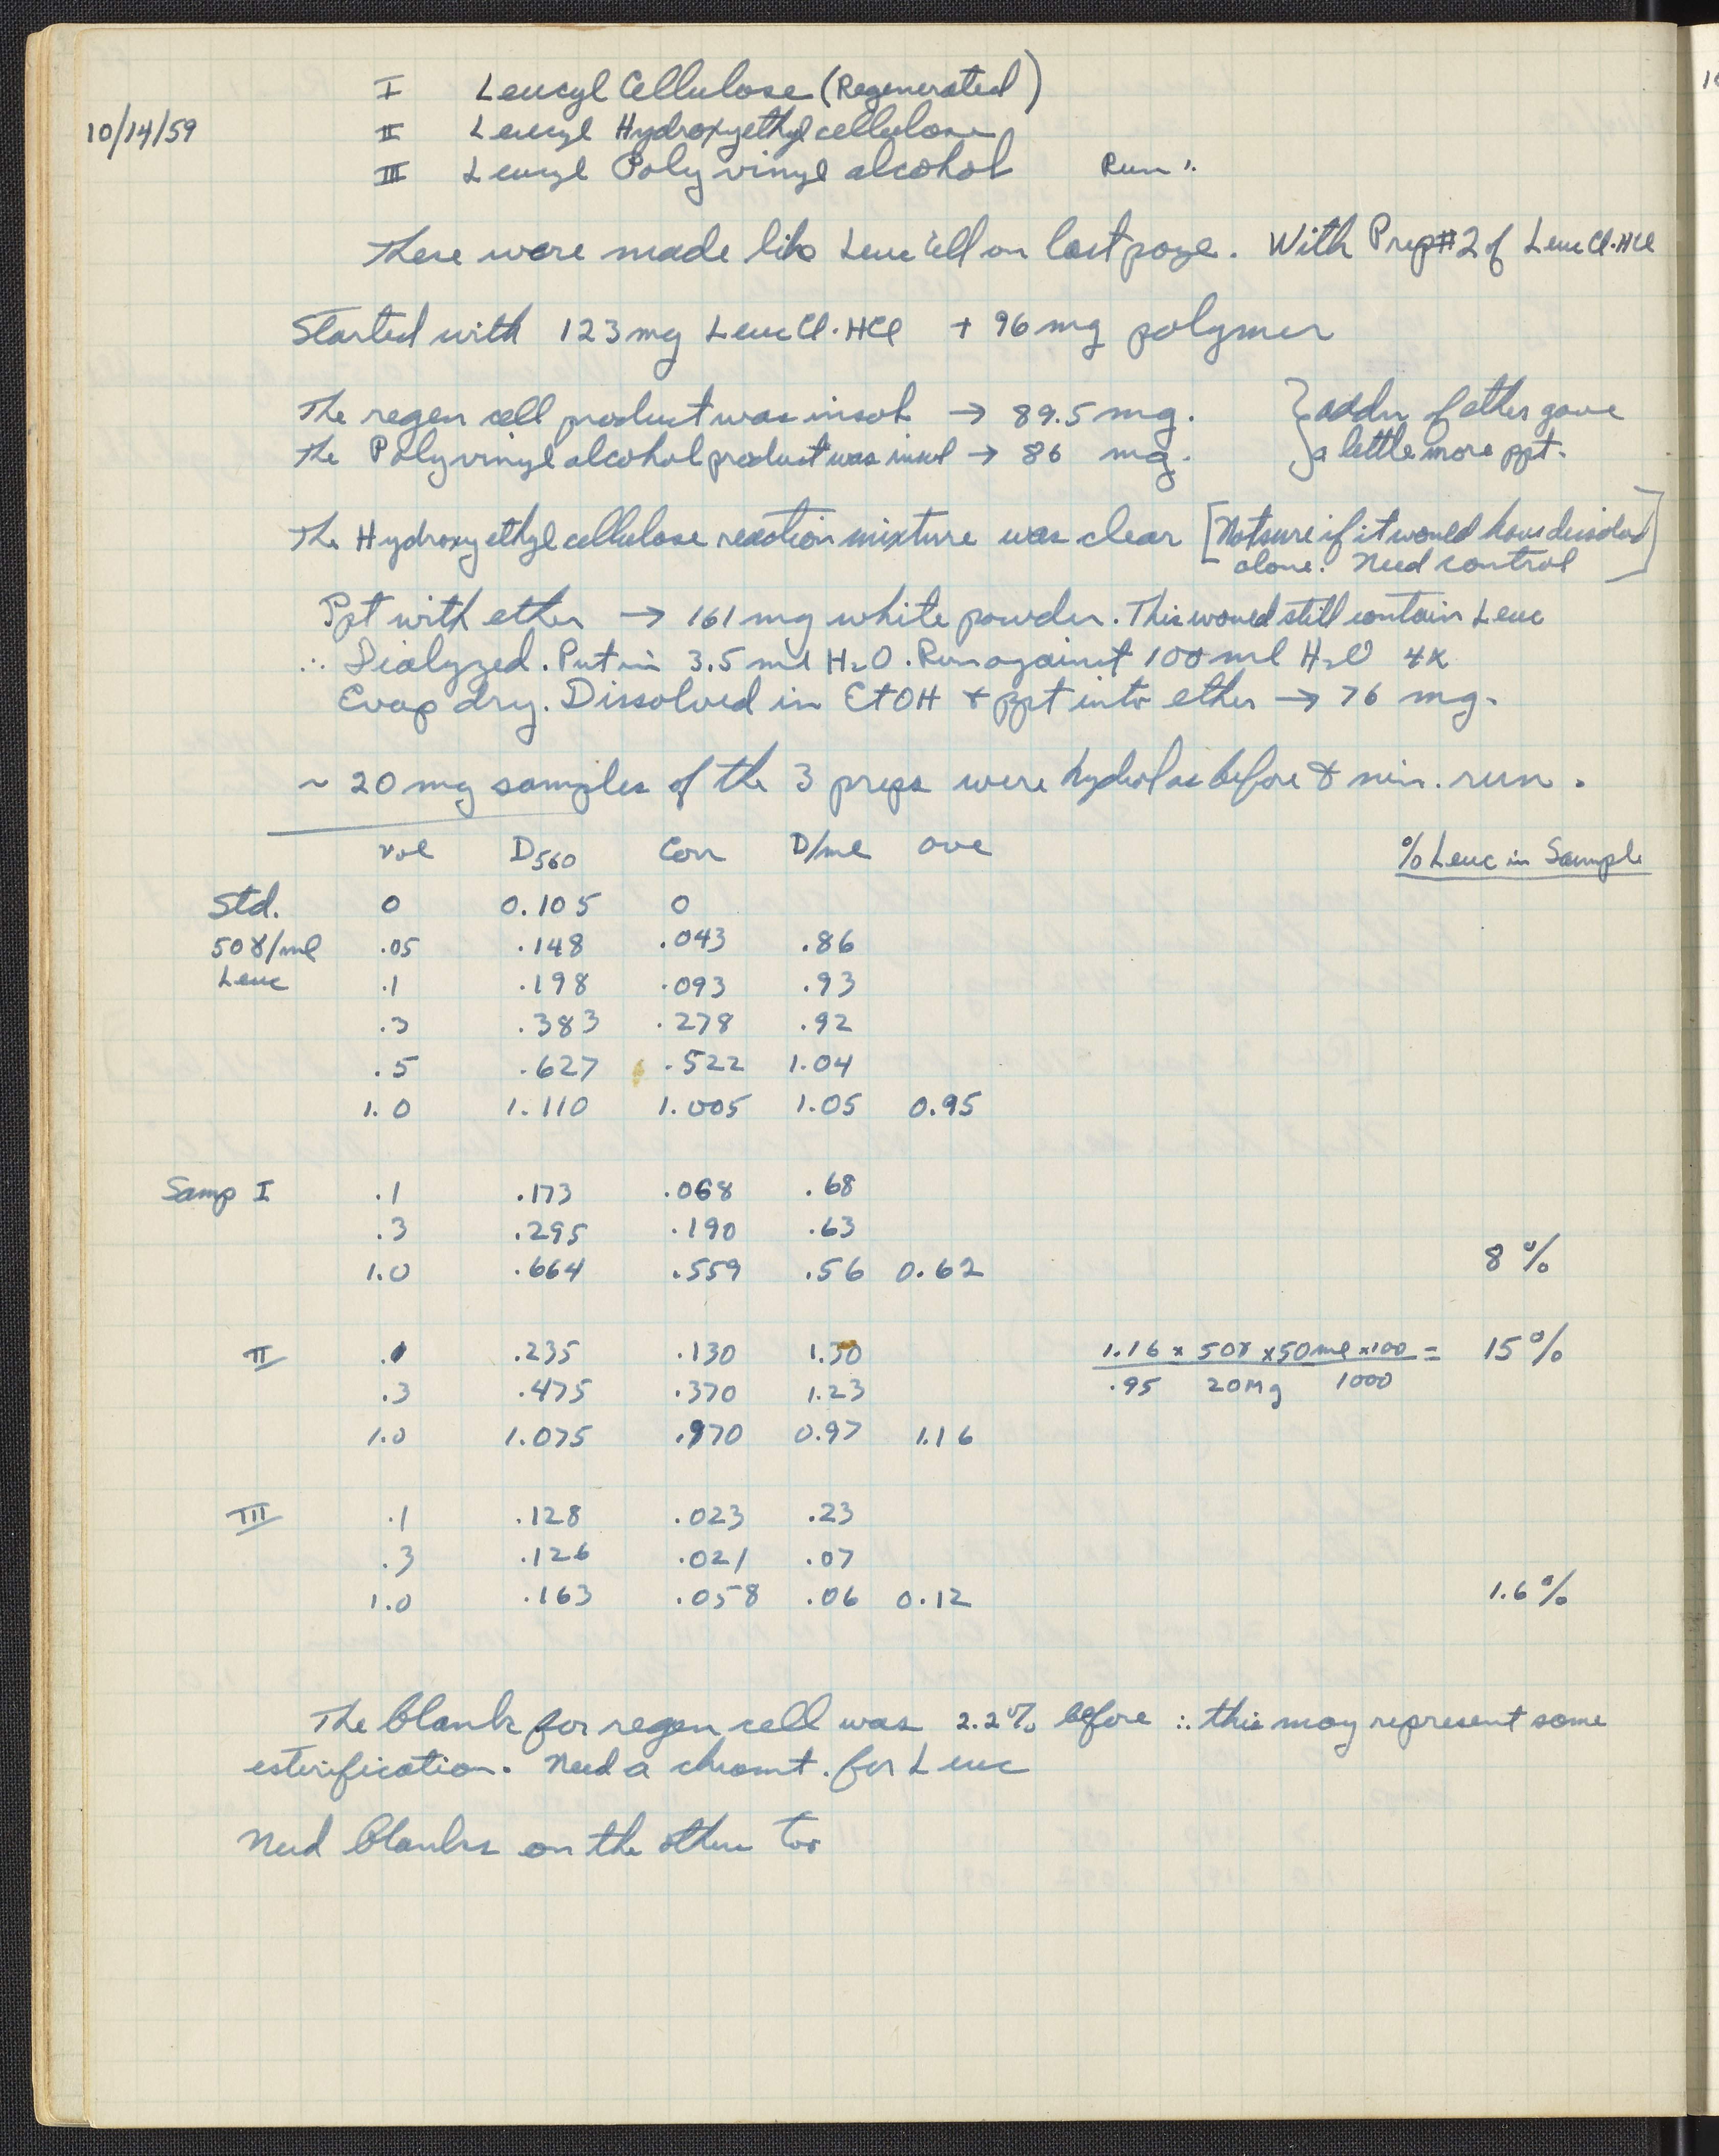 I Leucyl Cellulose (Regenerated)
10/14/59 II Leucyl Hydroxyethyl cellulose
III Leucyl Polyvinyl alcohol Run 1.
These were made like Leuc Cell on last page. With Prep #2 of Leuc Cl·HCl
Started with 123 mg Leuc Cl·HCl + 96 mg polymer
The regen cell product was insol → 89.5 mg. } addn of ether gave
The Polyvinyl alcohol product was insol → 86 mg. } a little more ppt.
The Hydroxy ethyl cellulose reaction mixture was clear [Not sure if it would have dissolved
alone. Need control]
Ppt with ether → 161 mg white powder. This would still contain Leuc
∴ Dialyzed. Put in 3.5 ml H2O. Run against 100 ml H2O 4x
Evap dry. Dissolved in EtOH & ppt into ether → 76 mg.
~ 20 mg samples of the 3 preps were hydrol as before & nin. run.
vol D560 Corr D/ml ave % Leuc in Sample
Std. 0 0.105 0
50γ/ml .05 .148 .043 .86
Leuc .1 .198 .093 .93
.3 .383 .278 .92
.5 .627 .522 1.04
1.0 1.110 1.005 1.05 0.95
Samp I .1 .173 .068 .68
.3 .295 .190 .63
1.0 .664 .559 .56 0.62 8 %
II .1 .235 .130 1.30 1.16 x 50γ x 50 ml x 100 = 15 %
.95 20 mg 1000
.3 .475 .370 1.23
1.0 1.075 .970 0.97 1.16
III .1 .128 .023 .23
.3 .126 .021 .07
1.0 .163 .058 .06 0.12 1.6 %
The blank for regen cell was 2.2% before ∴ this may represent some
esterification. Need a chromt. for Leuc
Need blanks on the other too